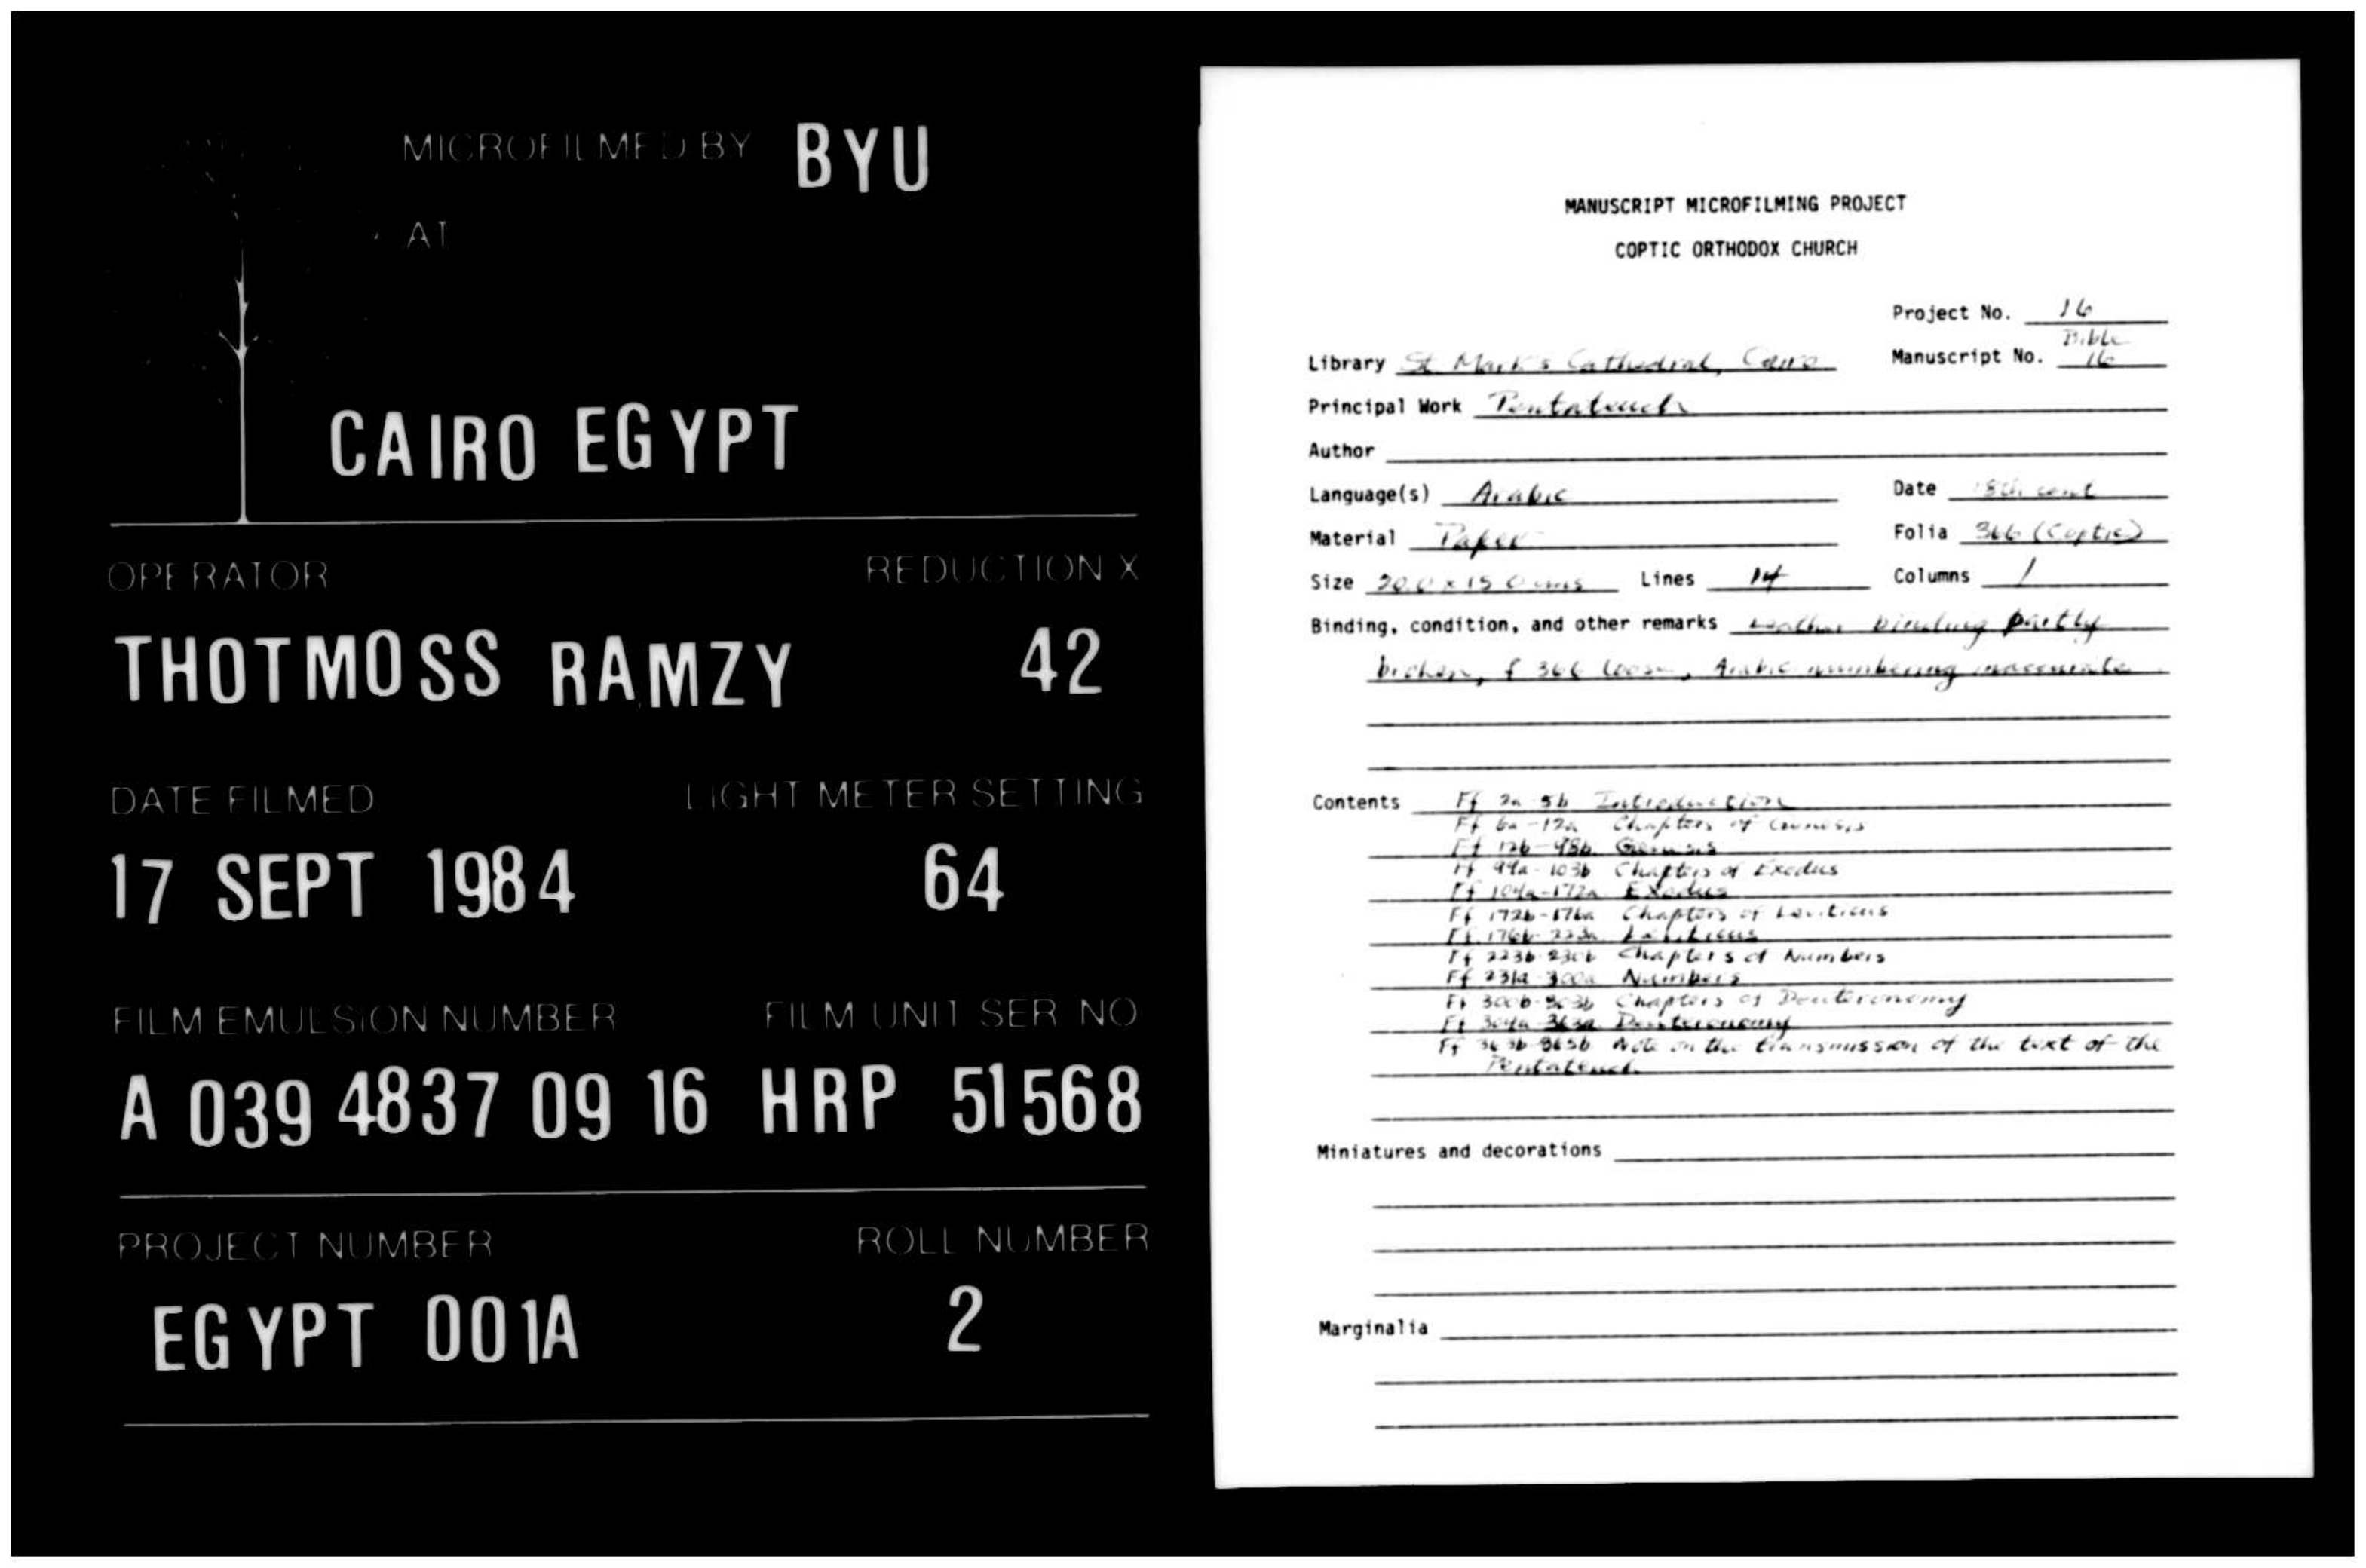 MICROFILMED BY BYU
AT
CAIRO EGYPT
OPERATOR REDUCTION X
THOTMOSS RAMZY 42
DATE FILMED LIGHT METER SETTING
17 SEPT 1984 64
FILM EMULSION NUMBER FILM UNIT SER NO
A 039 4837 09 16 HRP 51568
PROJECT NUMBER ROLL NUMBER
EGYPT 001A 2
MANUSCRIPT MICROFILMING PROJECT
COPTIC ORTHODOX CHURCH
Project No. 16
Library St. Mark's Cathedral, Cairo Manuscript No. Bible 16
Principal Work Pentateuch
Author
Language(s) Arabic Date 18th cent
Material Paper Folia 366 (Coptic)
Size 20.0 x 15.0 cms Lines 14 Columns 1
Binding, condition, and other remarks Leather binding partly
broken, f 366 loose, Arabic numbering inaccurate
Contents Ff 2a-5b Introduction
Ff 6a-12a Chapters of Genesis
Ff 12b-98b Genesis
Ff 99a-103b Chapters of Exodus
Ff 104a-172a Exodus
Ff 172b-176a Chapters of Leviticus
Ff 176b-223a Leviticus
Ff 223b-230b Chapters of Numbers
Ff 231a-300a Numbers
Ff 300b-303b Chapters of Deuteronomy
Ff 304a-363a Deuteronomy
Ff 363b-365b Note on the transmission of the text of the
Pentateuch
Miniatures and decorations
Marginalia